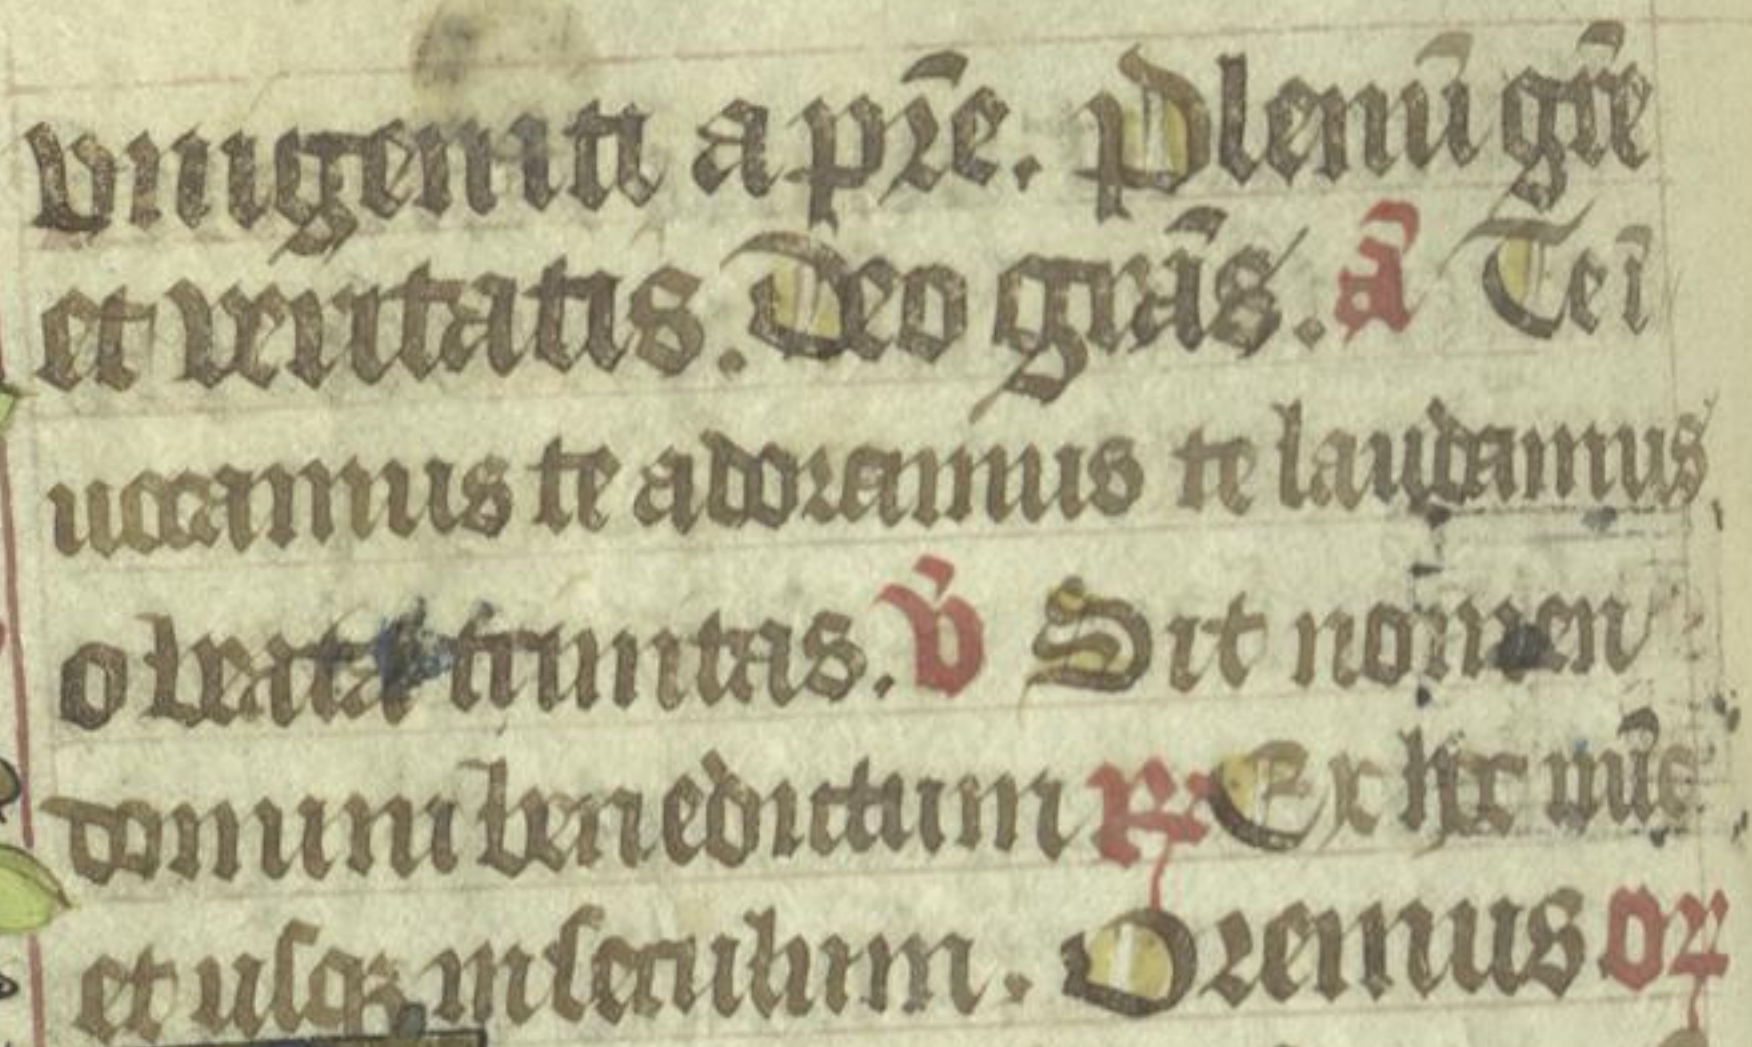 vnigeniti a pr̄e. Plenū gr̄e
et veritatis. Deo gr̄as. ā Te ī
uocamus te adoramus te laudamus
o beata trinitas. v̄ Sit nomen
domini benedictum ℟ Ex hoc nūc
et usqꝫ in seculum. Oremus oꝝ